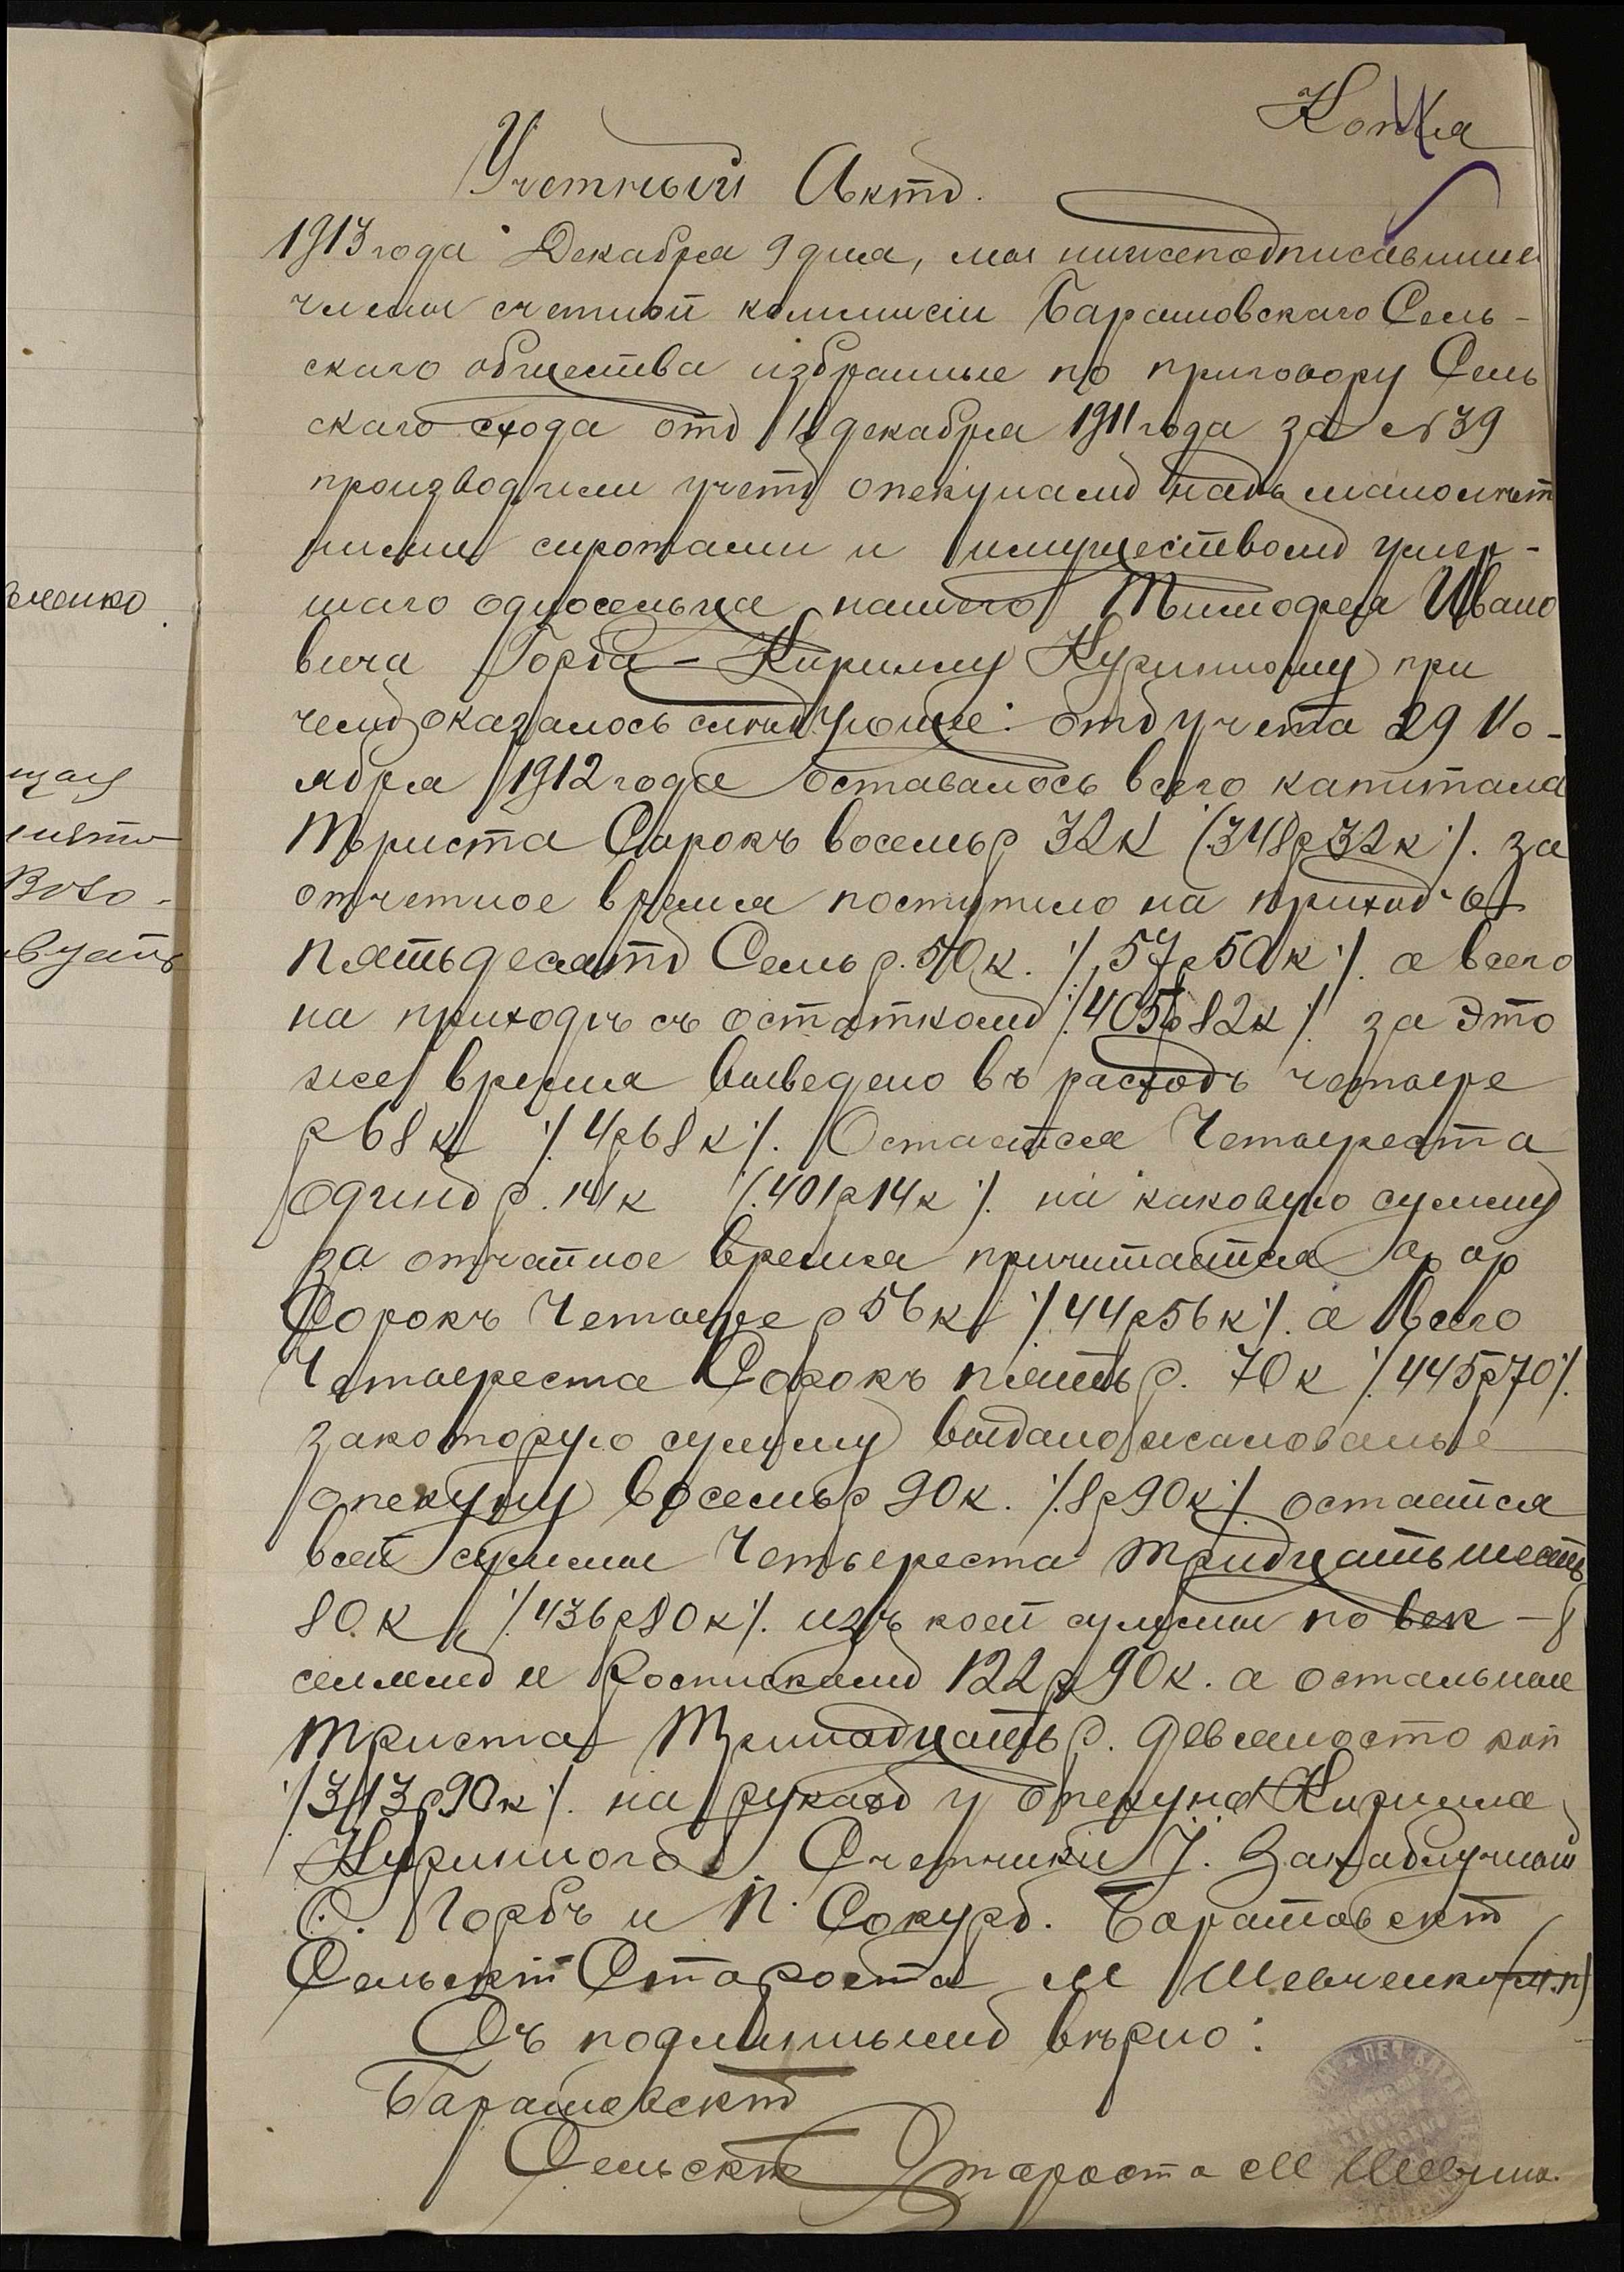 Копія
Учетный Актъ.
1913 года Декабря 9 дня, мы нижеподписавшие
члены счетной коммисіи Барашовскаго Сель-
скаго общества избранные по приговору Сель
скаго схода отъ 11 декабря 1911 года за № 39
производили учетъ опекунамъ надъ малолѣт
ними сиротами и имуществомъ умер-
шаго односельца нашего Тимофея Ивано
вича Горба - Кириллу Куринному при
чемъ оказалось слѣдующее: отъ учета 29 Но-
ября 1912 года оставалось всего капитала
Триста Сорокъ восемь р 32 к /348 р 32 к/. за
отчетное время поступило на приходъ
пятьдесятъ Семь р. 50 к. /57 р 50 к/. а всего
на приходъ съ остаткомъ /405 р 82 к/ за Это
же время выведено въ расходъ четыре
р 68 к /4 р 68 к/. Остается Четыреста
одинъ р. 14 к /401 р 14 к/. на каковую сумму
за отчетное время причитается
Сорокъ Четыре р 56 к /44 р 56 к/. а всего
Четыреста Сорокъ пять р. 70 к /445 р 70/.
за которую сумму выдано жалованье
опекуну восемь р 90 к. /8 р 90 к/ остается
всей суммы Четыреста тридцать шесть
80 к /436 р 80 к/. изъ коей суммы по век-
селямъ и Роспискамъ 122 р 90 к. а остальные
триста Тринадцать р. девяносто коп
/313 р 90 к/. на рукахъ у опекуна Кирилла
Куринного. Счетчики Захаблучный
С. Горбъ и П. Сокуръ. Барашовскій
Сельскій Староста М Шевченко (м.п)
Съ подлиннымъ вѣрно:
Барашовскій
Сельскій Староста М Шевченко
енко
щая